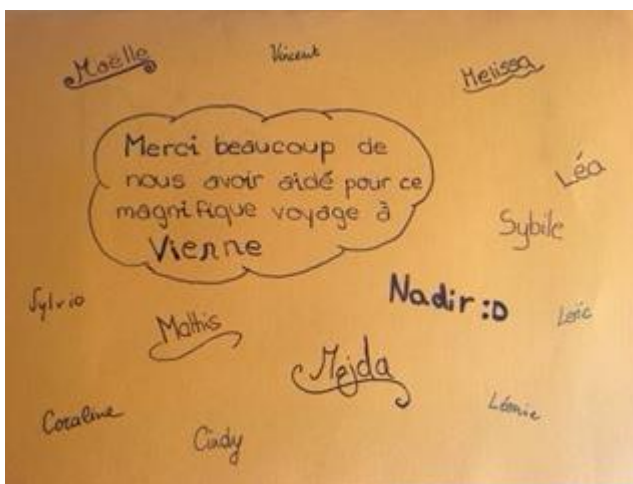 Maëlle
Vincent
Melissa
Merci beaucoup de
nous avoir aidé pour ce
magnifique voyage à
Vienne
Léa
Sybile
Sylvio
Nadir :D
Loïc
Mathis
Mejda
Coraline
Léonie
Cindy